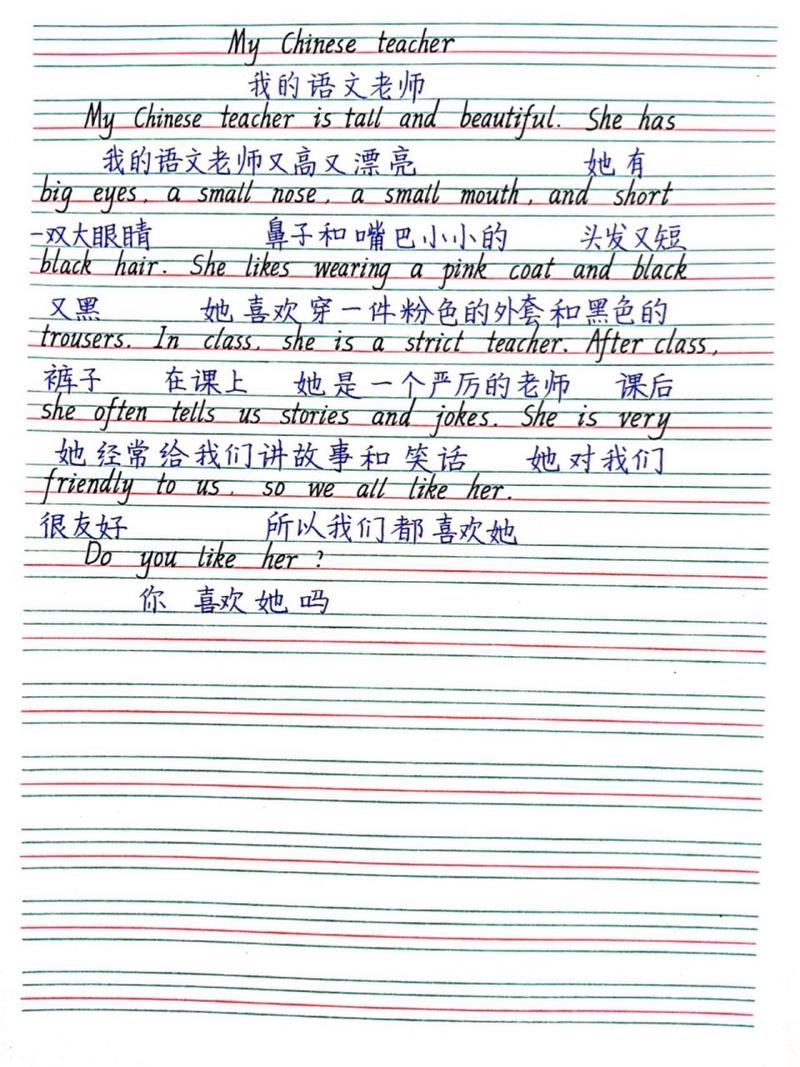 My Chinese teacher
我的语文老师
My Chinese teacher is tall and beautiful. She has
我的语文老师又高又漂亮 她有
big eyes, a small nose, a small mouth, and short
一双大眼睛 鼻子和嘴巴小小的 头发又短
black hair. She likes wearing a pink coat and black
又黑 她喜欢穿一件粉色的外套和黑色的
trousers. In class, she is a strict teacher. After class,
裤子 在课上 她是一个严厉的老师 课后
she often tells us stories and jokes. She is very
她经常给我们讲故事和笑话 她对我们
friendly to us, so we all like her.
很友好 所以我们都喜欢她
Do you like her?
你喜欢她吗